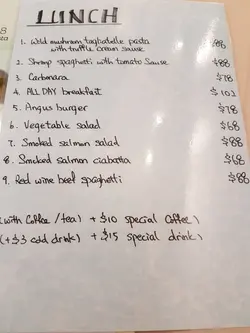 LUNCH
1. Wild mushroom tagliatelle pasta
with truffle cream sause $88
2. Shrimp spaghetti with tomato Sause $88
3. Carbonara $78
4. ALL DAY breakfast $102
5. Angus burger $78
6. Vegetable salad $68
7. Smoked salmon salad $88
8. Smoked salmon ciabatta $68
9. Red wine beef spaghetti $88
(with Coffee /tea) + $10 special Coffee)
(+$3 cold drink) + $15 special drink)